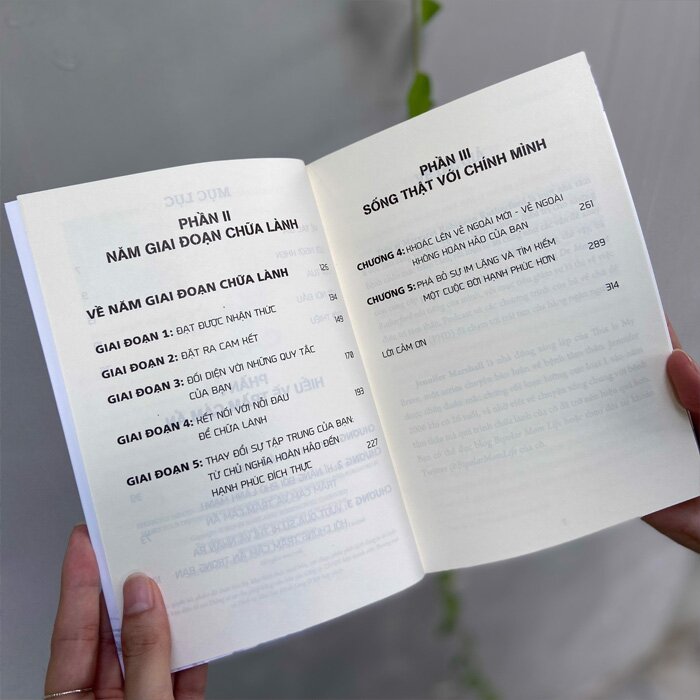 PHẦN II
NĂM GIAI ĐOẠN CHỮA LÀNH
VỀ NĂM GIAI ĐOẠN CHỮA LÀNH 125
GIAI ĐOẠN 1: ĐẠT ĐƯỢC NHẬN THỨC 134
GIAI ĐOẠN 2: ĐẶT RA CAM KẾT 149
GIAI ĐOẠN 3: ĐỐI DIỆN VỚI NHỮNG QUY TẮC
CỦA BẠN 170
GIAI ĐOẠN 4: KẾT NỐI VỚI NỖI ĐAU
ĐỂ CHỮA LÀNH 193
GIAI ĐOẠN 5: THAY ĐỔI SỰ TẬP TRUNG CỦA BẠN:
TỪ CHỦ NGHĨA HOÀN HẢO ĐẾN 227
HẠNH PHÚC ĐÍCH THỰC
PHẦN III
SỐNG THẬT VỚI CHÍNH MÌNH
CHƯƠNG 4: KHOÁC LÊN VẺ NGOÀI MỚI - VẺ NGOÀI
KHÔNG HOÀN HẢO CỦA BẠN 261
CHƯƠNG 5: PHÁ BỎ SỰ IM LẶNG VÀ TÌM KIẾM
MỘT CUỘC ĐỜI HẠNH PHÚC HƠN 289
LỜI CẢM ƠN 314